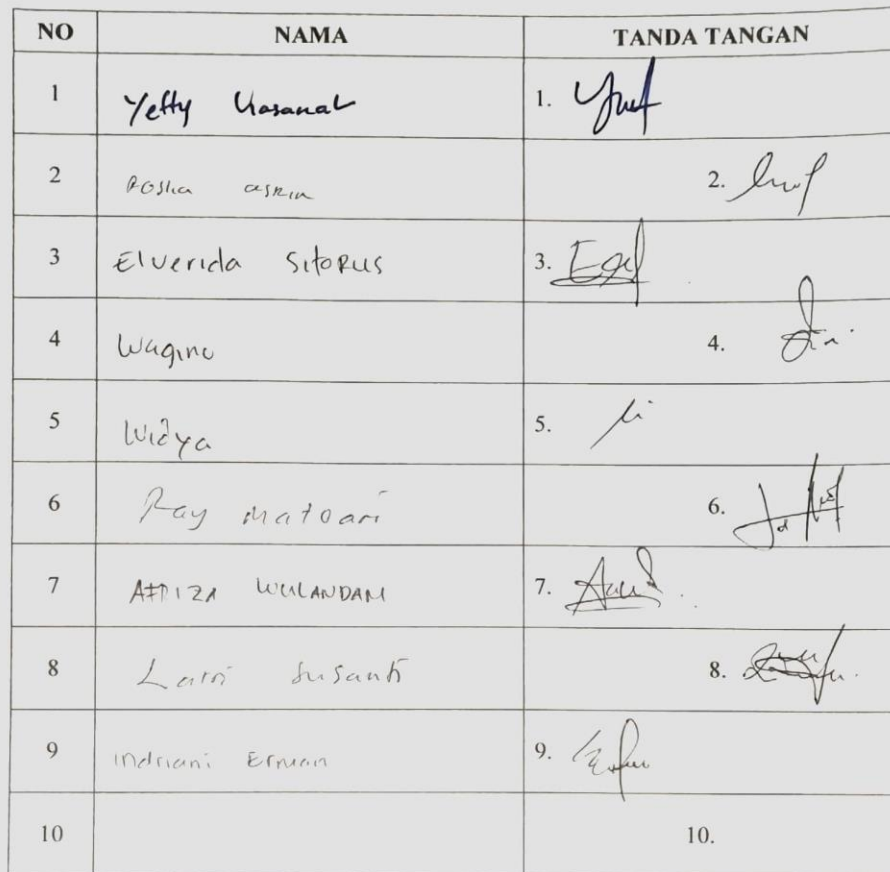 NO NAMA TANDA TANGAN
1 Yetty Hasanah 1.
2 Rosha asrin 2.
3 Elverida SitoRus 3.
4 Wagino 4.
5 Widya 5.
6 Ray 6.
7 AFRIZA WULANDARI 7.
8 Susanti 8.
9 Indriani Erman 9.
10 10.